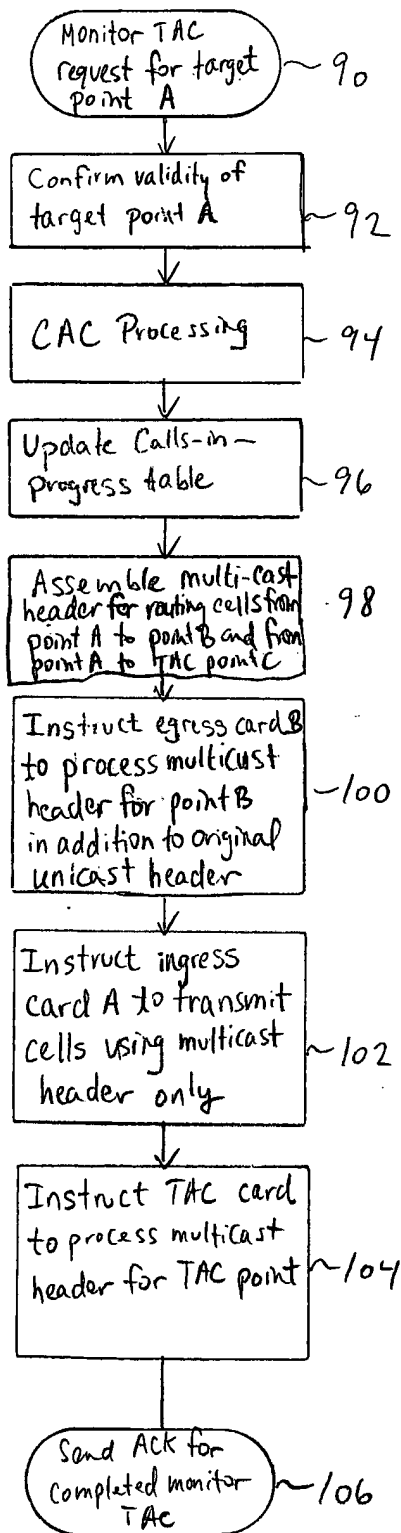 Monitor TAC
request for target
point A
90
Confirm validity of
target point A
92
CAC Processing
94
Update Calls-in-
progress table
96
Assemble multi-cast
header for routing cells from
point A to point B and from
point A to TAC point C
98
Instruct egress card B
to process multicast
header for point B
in addition to original
unicast header
100
Instruct ingress
card A to transmit
cells using multicast
header only
102
Instruct TAC card
to process multicast
header for TAC point
104
Send ACK for
completed monitor
TAC
106